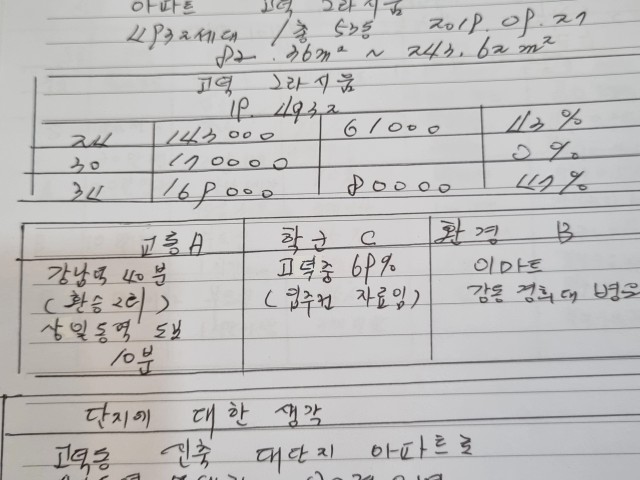 아파트 고덕 그라시움
4932세대 1층 53동 2019.09.27
82.36m² ~ 243.62m²
고덕 그라시움
19. 4932
24 143000 61000 43%
30 170000 0%
34 169000 80000 47%
교통A 학군 C 환경 B
강남역 40분 고덕중 69% 이마트
(환승 2회) (입주전 자료임) 강동 경희대 병원
상일동역 도보
10분
단지에 대한 생각
고덕동 신축 대단지 아파트로